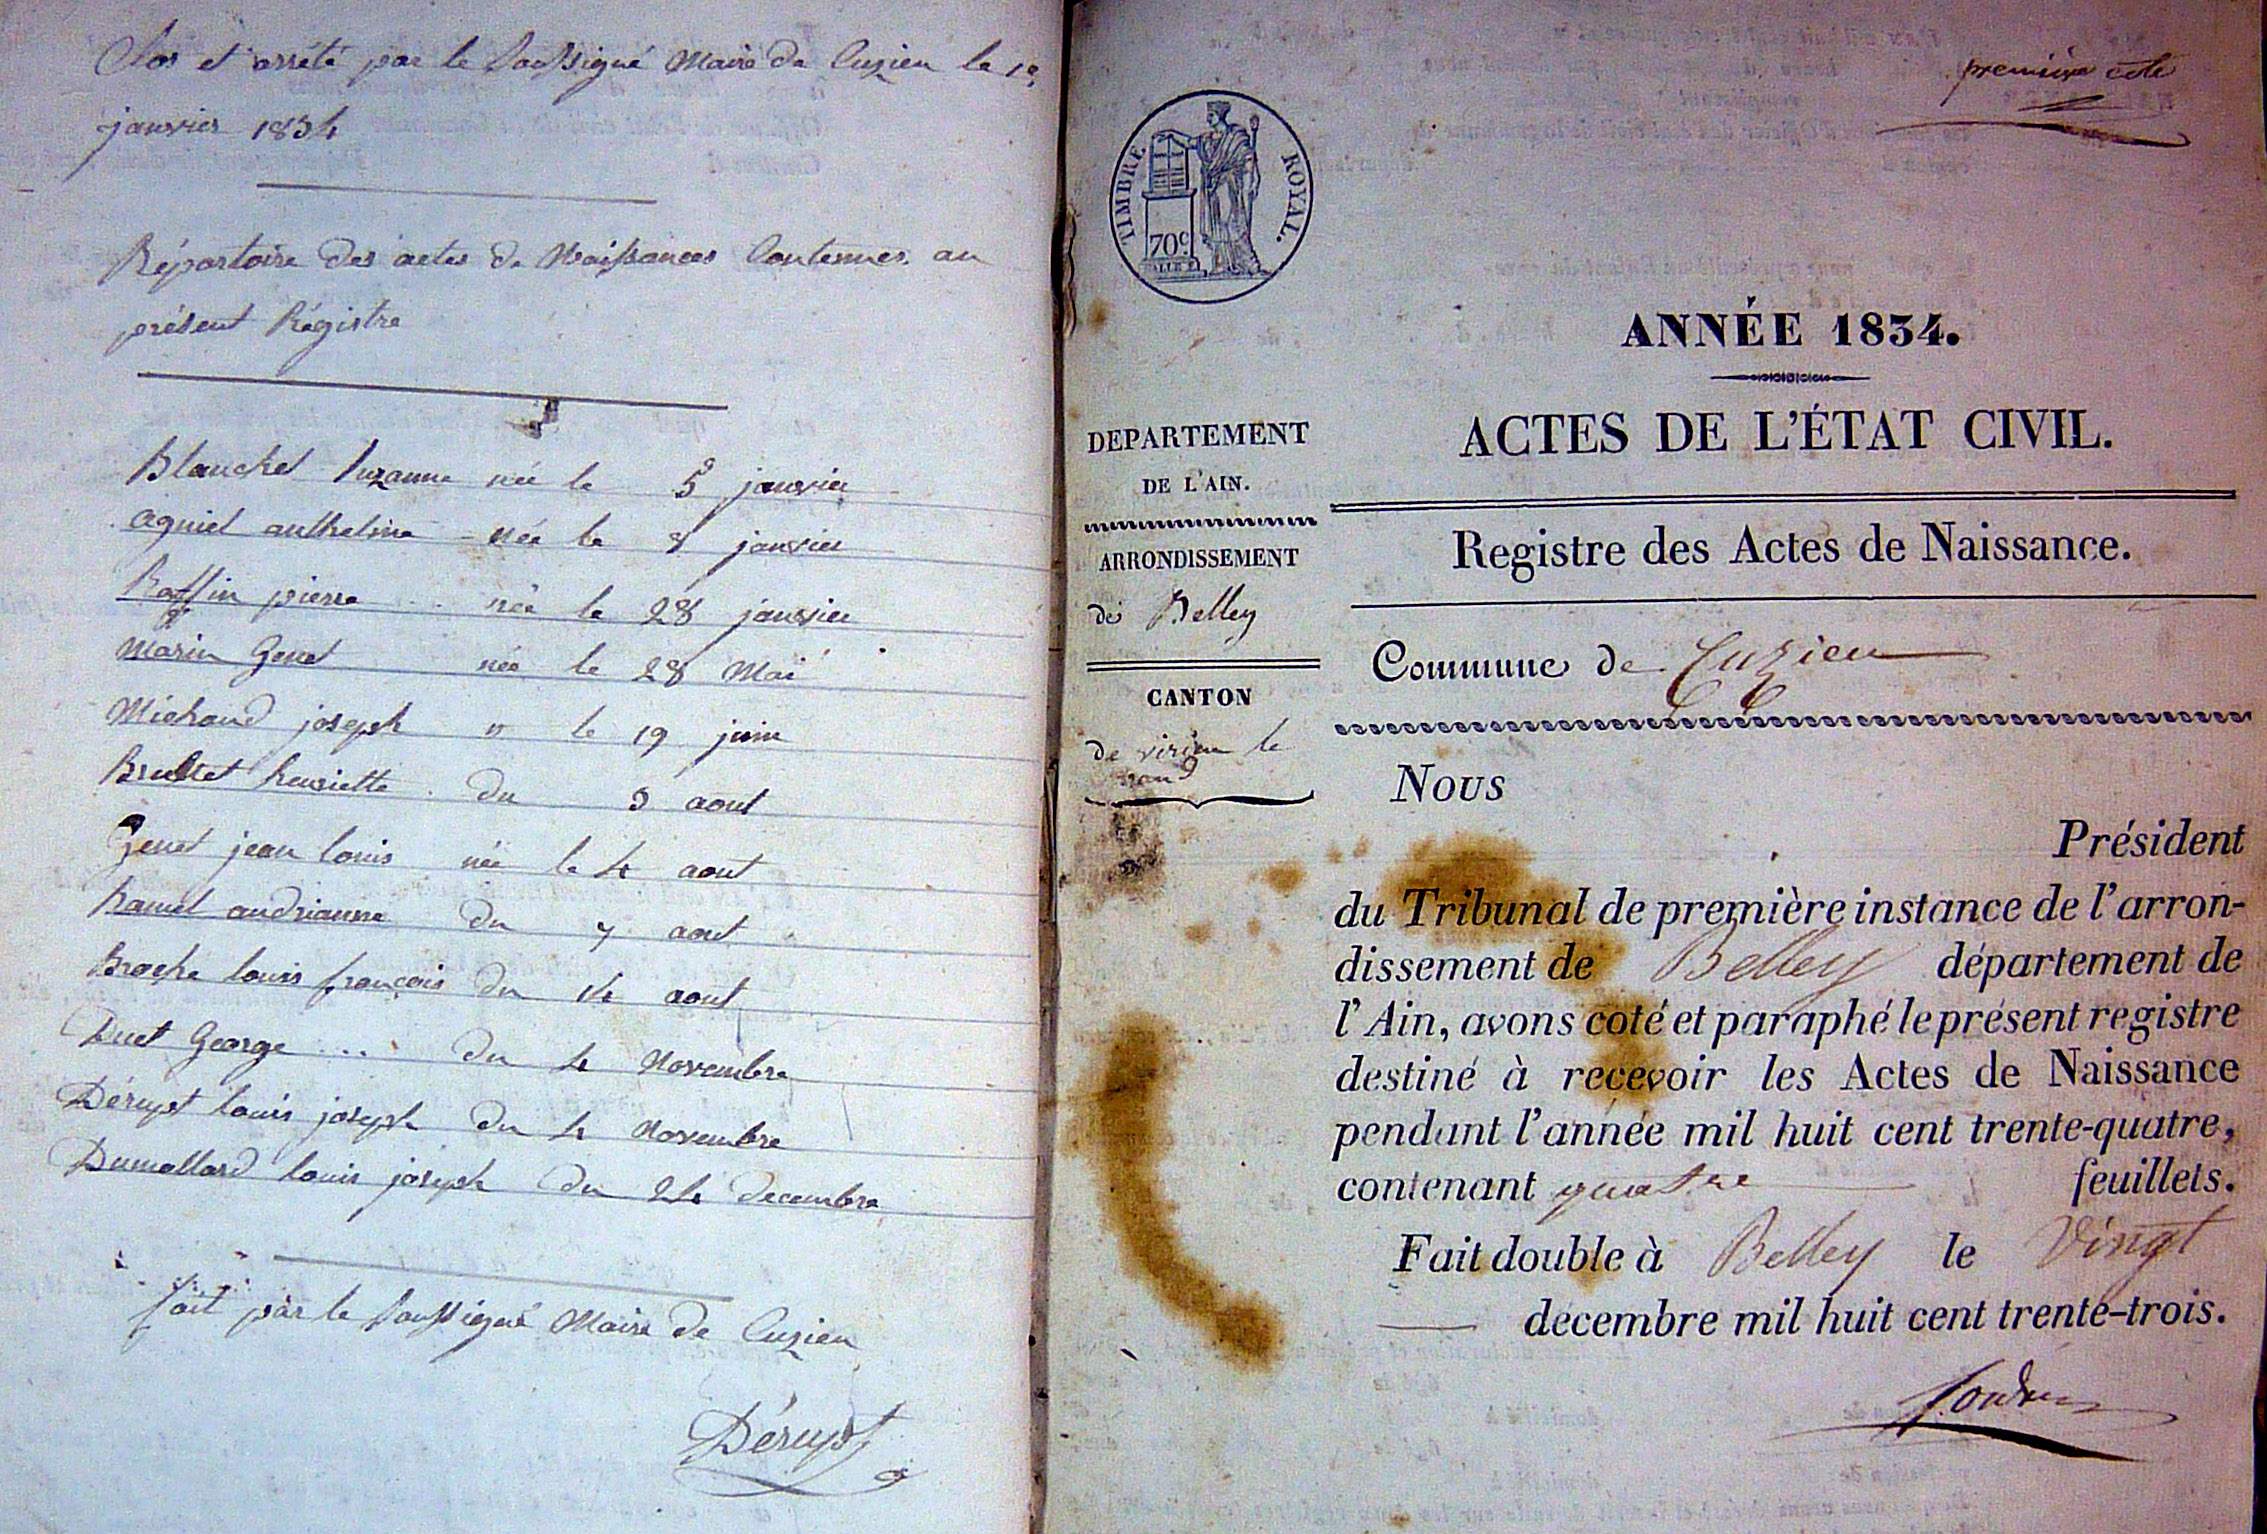 Clos et arrété par le Soussigné Maire de Cuzieu le 1er
janvier 1834
Répertoire des actes de Naissances Contenues au
présent Régistre
Blanchet Suzanne née le 5 janvier
Agniel anthelme née le 8 janvier
Roffin pierre née le 28 janvier
Marin Genet née le 28 Mai
Michaud joseph " le 19 juin
Brullet henriette du 3 aout
Genet jean louis née le 4 aout
hamel andrianne du 7 aout
Broche louis françois du 14 aout
Duet George ... du 4 Novembre
Déruyst louis joseph du 4 Novembre
Dumollard louis joseph du 24 decembre
fait par le Soussigné Maire de Cuzieu
Déruyst
première cote
TIMBRE ROYAL.
70c
ANNÉE 1834.
ACTES DE L'ÉTAT CIVIL.
DEPARTEMENT
DE L'AIN.
Registre des Actes de Naissance.
ARRONDISSEMENT
de Belley
Commune de Cuzieu
CANTON
de virieu le
grand
Nous
Président
du Tribunal de première instance de l'arron-
dissement de Belley département de
l'Ain, avons coté et paraphé le présent registre
destiné à recevoir les Actes de Naissance
pendant l'année mil huit cent trente-quatre,
contenant quatre feuillets.
Fait double à Belley le Vingt
decembre mil huit cent trente-trois.